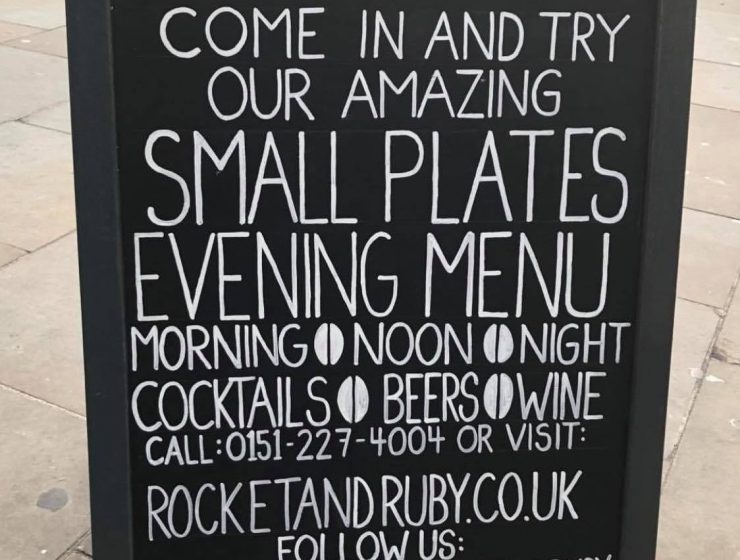 COME IN AND TRY
OUR AMAZING
SMALL PLATES
EVENING MENU
MORNING NOON NIGHT
COCKTAILS BEERS WINE
CALL:0151-227-4004 OR VISIT:
ROCKETANDRUBY.CO.UK
FOLLOW US: